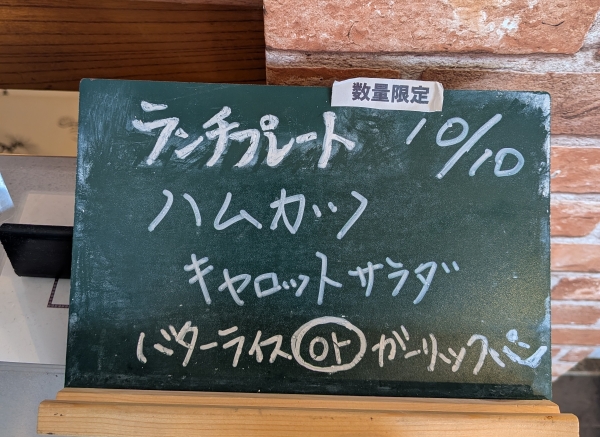 数量限定
ランチプレート 10/10
ハムカツ
キャロットサラダ
バターライス or ガーリックパン